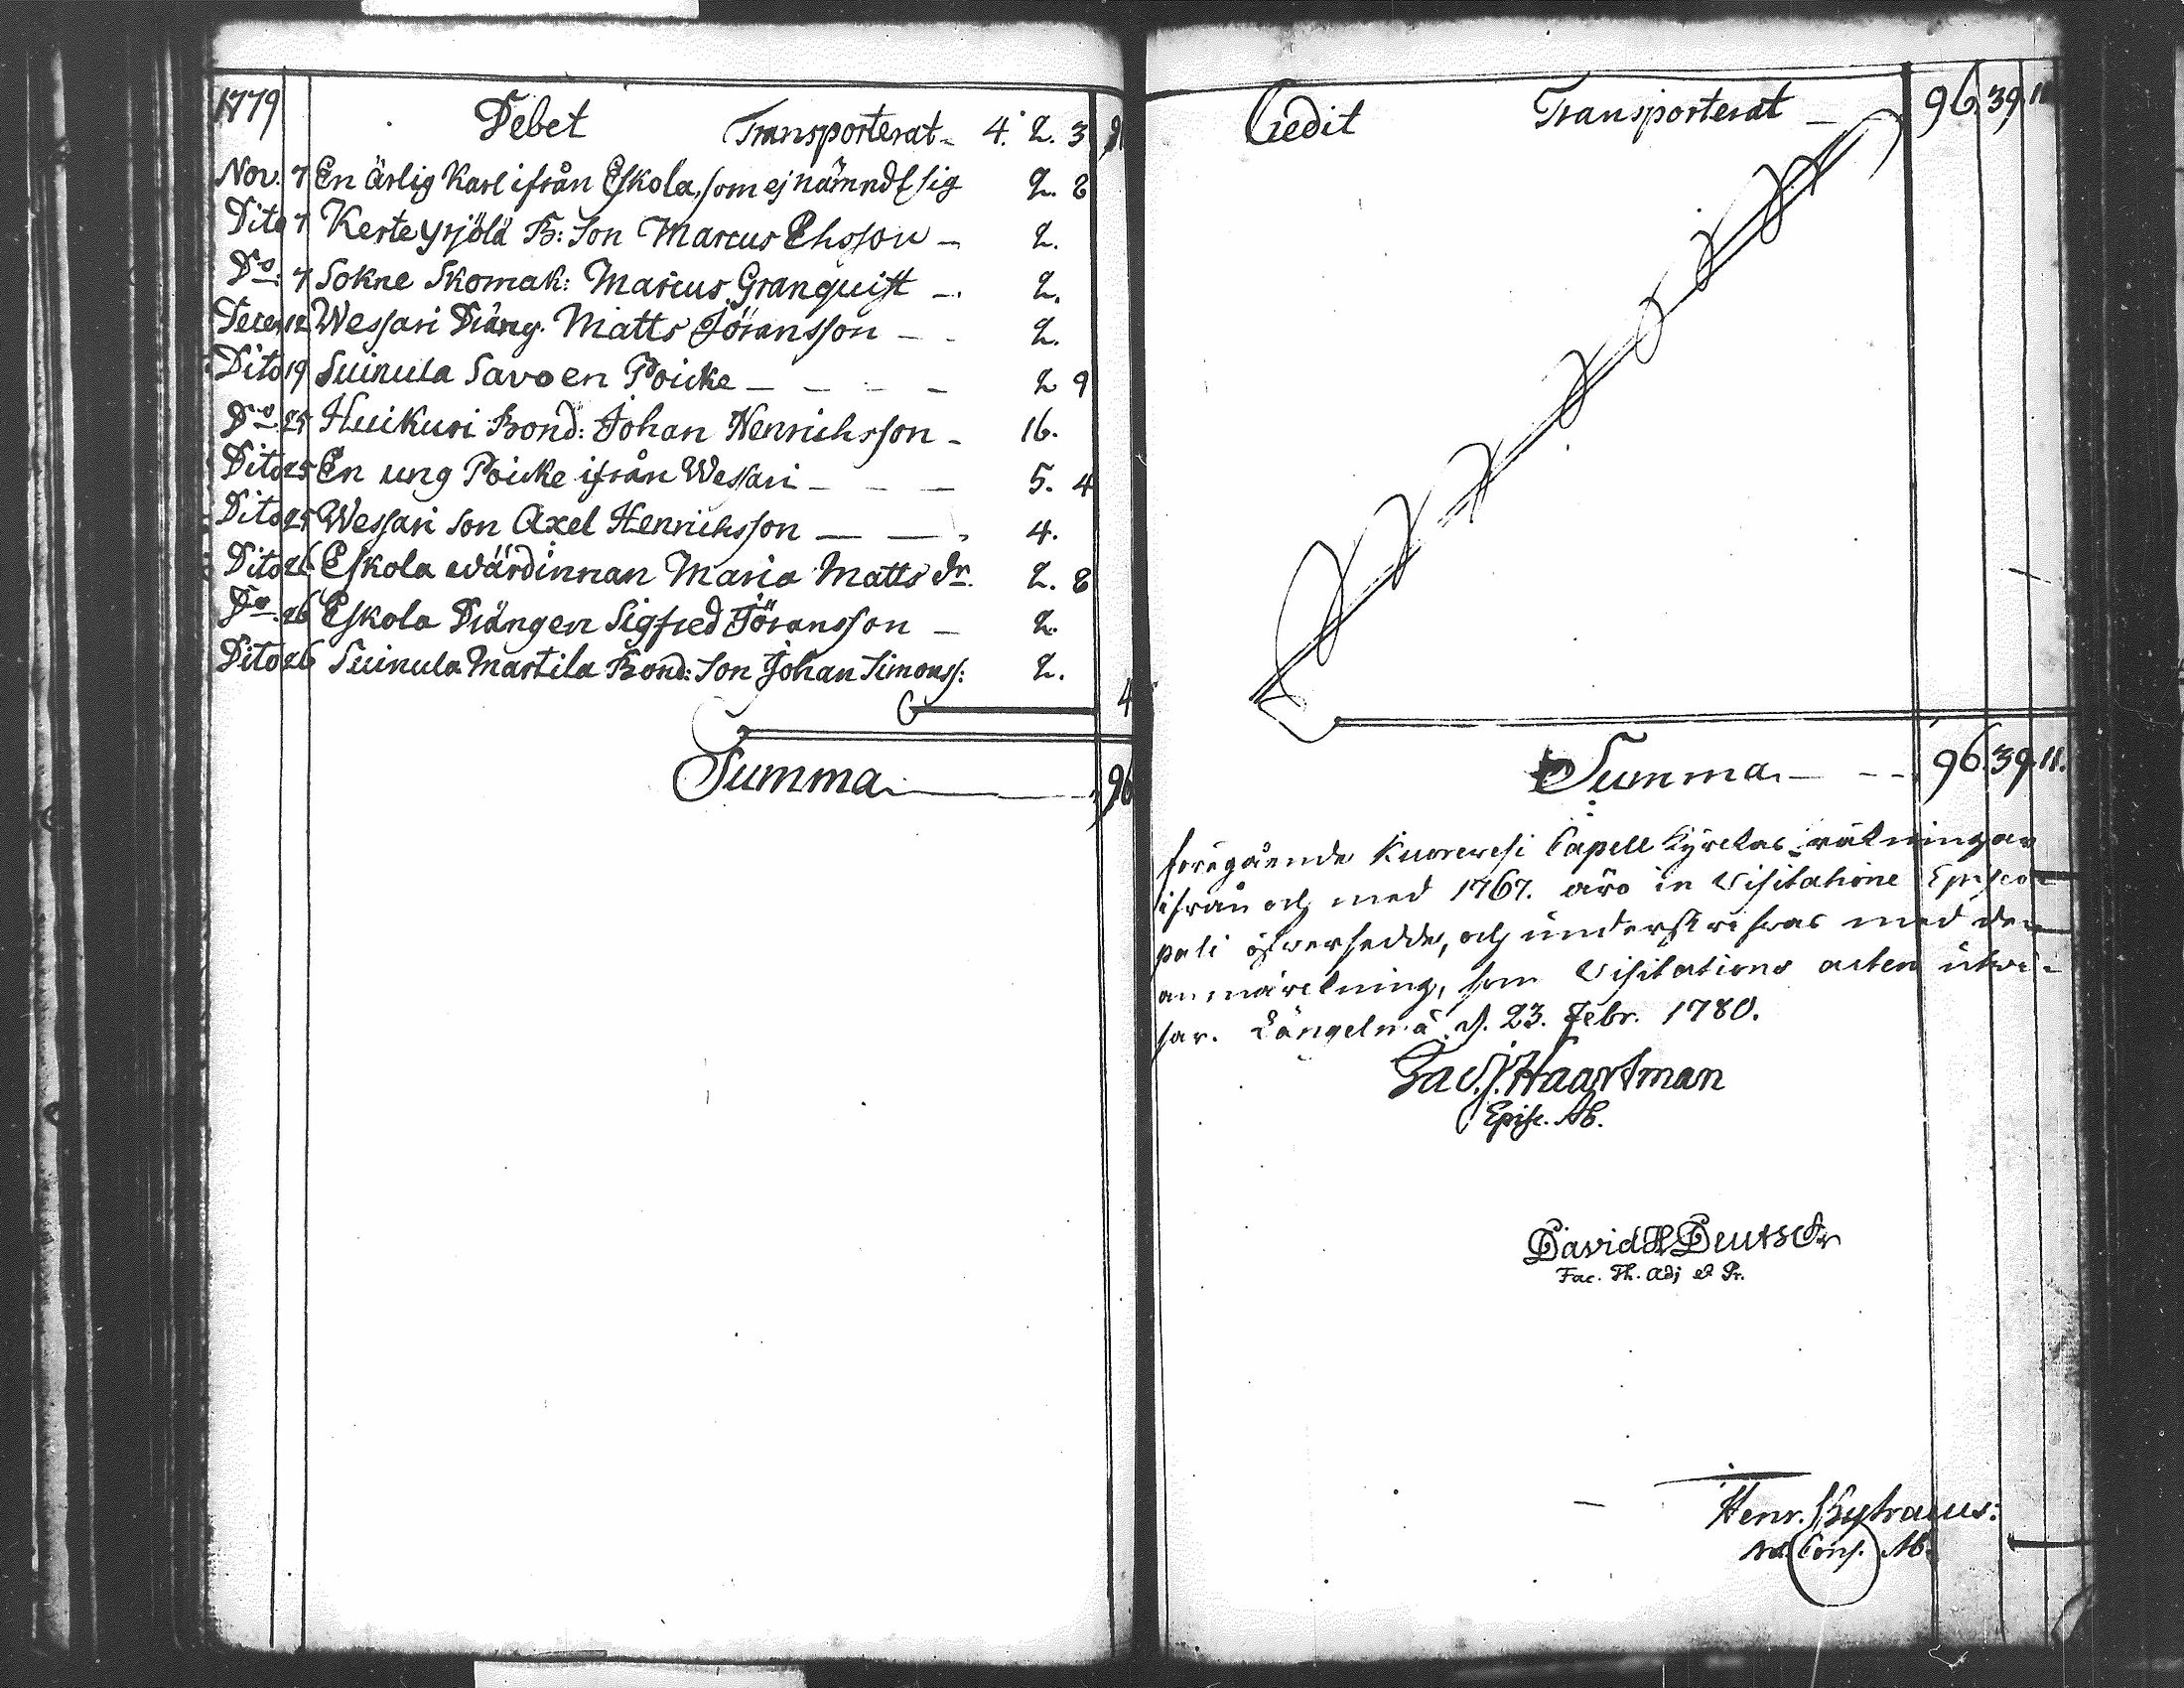 1779 Debet Transporterat 4. 2. 3
Nov. 7 En ärlig Karl ifrån Eskola, som ej nämndt sig 2. 8
Dito 7 Kerte yrjölä B: Son Marcus Ehsson – 2.
Do. 7 Sokne Skomak: Marcus Granquist – 2.
Decem 12 Wessari Dräng. Matts Jöransson – – 2.
Dito 19 Suinula Savoen Poicke – – – – 2 9
Do. 25 Huikuri Bond: Johan Henrichsson – 16.
Dito 25 En ung Poicke ifrån Wessari – – – 5. 4
Dito 25 Wessari Son Axel Henrichsson – – 4.
Dito 26 Eskola wärdinnan Maria Matts dr. 2. 8
Do. 26 Eskola Drängen Sigfred Jöransson – 2.
Dito 26 Suinula Martila Bond: Son Johan Simonss: 2.
4
Summa 96
Credit Transporterat – 96. 39. 11
Summa – – – 96. 39. 11.
föregående Kuorevesi Capell Kyrckas räkningar
ifrån och med 1767. äro in Visitatione Episco-
pali öfversedde, och underskrifwas med den
anmärckning, som Visitations acten utwi-
sar. Längelmä d. 23. Febr. 1780.
Jac. J. Haartman
Episc. Ab.
David H Deutsch
Fac. Th. Adj & Pr.
Henr.
Cons. Ab.